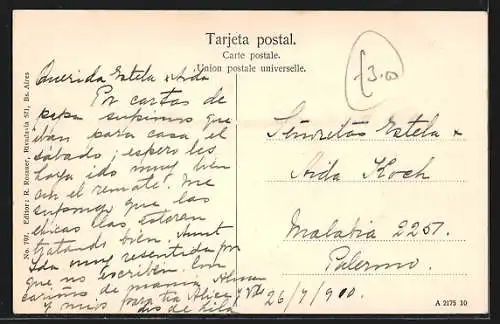 Tarjeta postal.
Carte postale.
Union postale universelle.
No. 797. Editor: R. Rosauer, Rivadavia 571, Bs. Aires
Querida Estela & Aida
Por cartas de
papa supimos que
iban para casa el
sábado; espero les
haya ido muy bien
en el remate. Me
supongo que las
chicas las estaran
tratando bien.
Ida muy resentida por
que no escriben. Con
cariños de mama,
y mios para tia Alice y Vds
de Lila
£3.00
Señoritas Estela &
Aida Koch
Malabia 2251.
Palermo.
26/7/900
A 2175 10